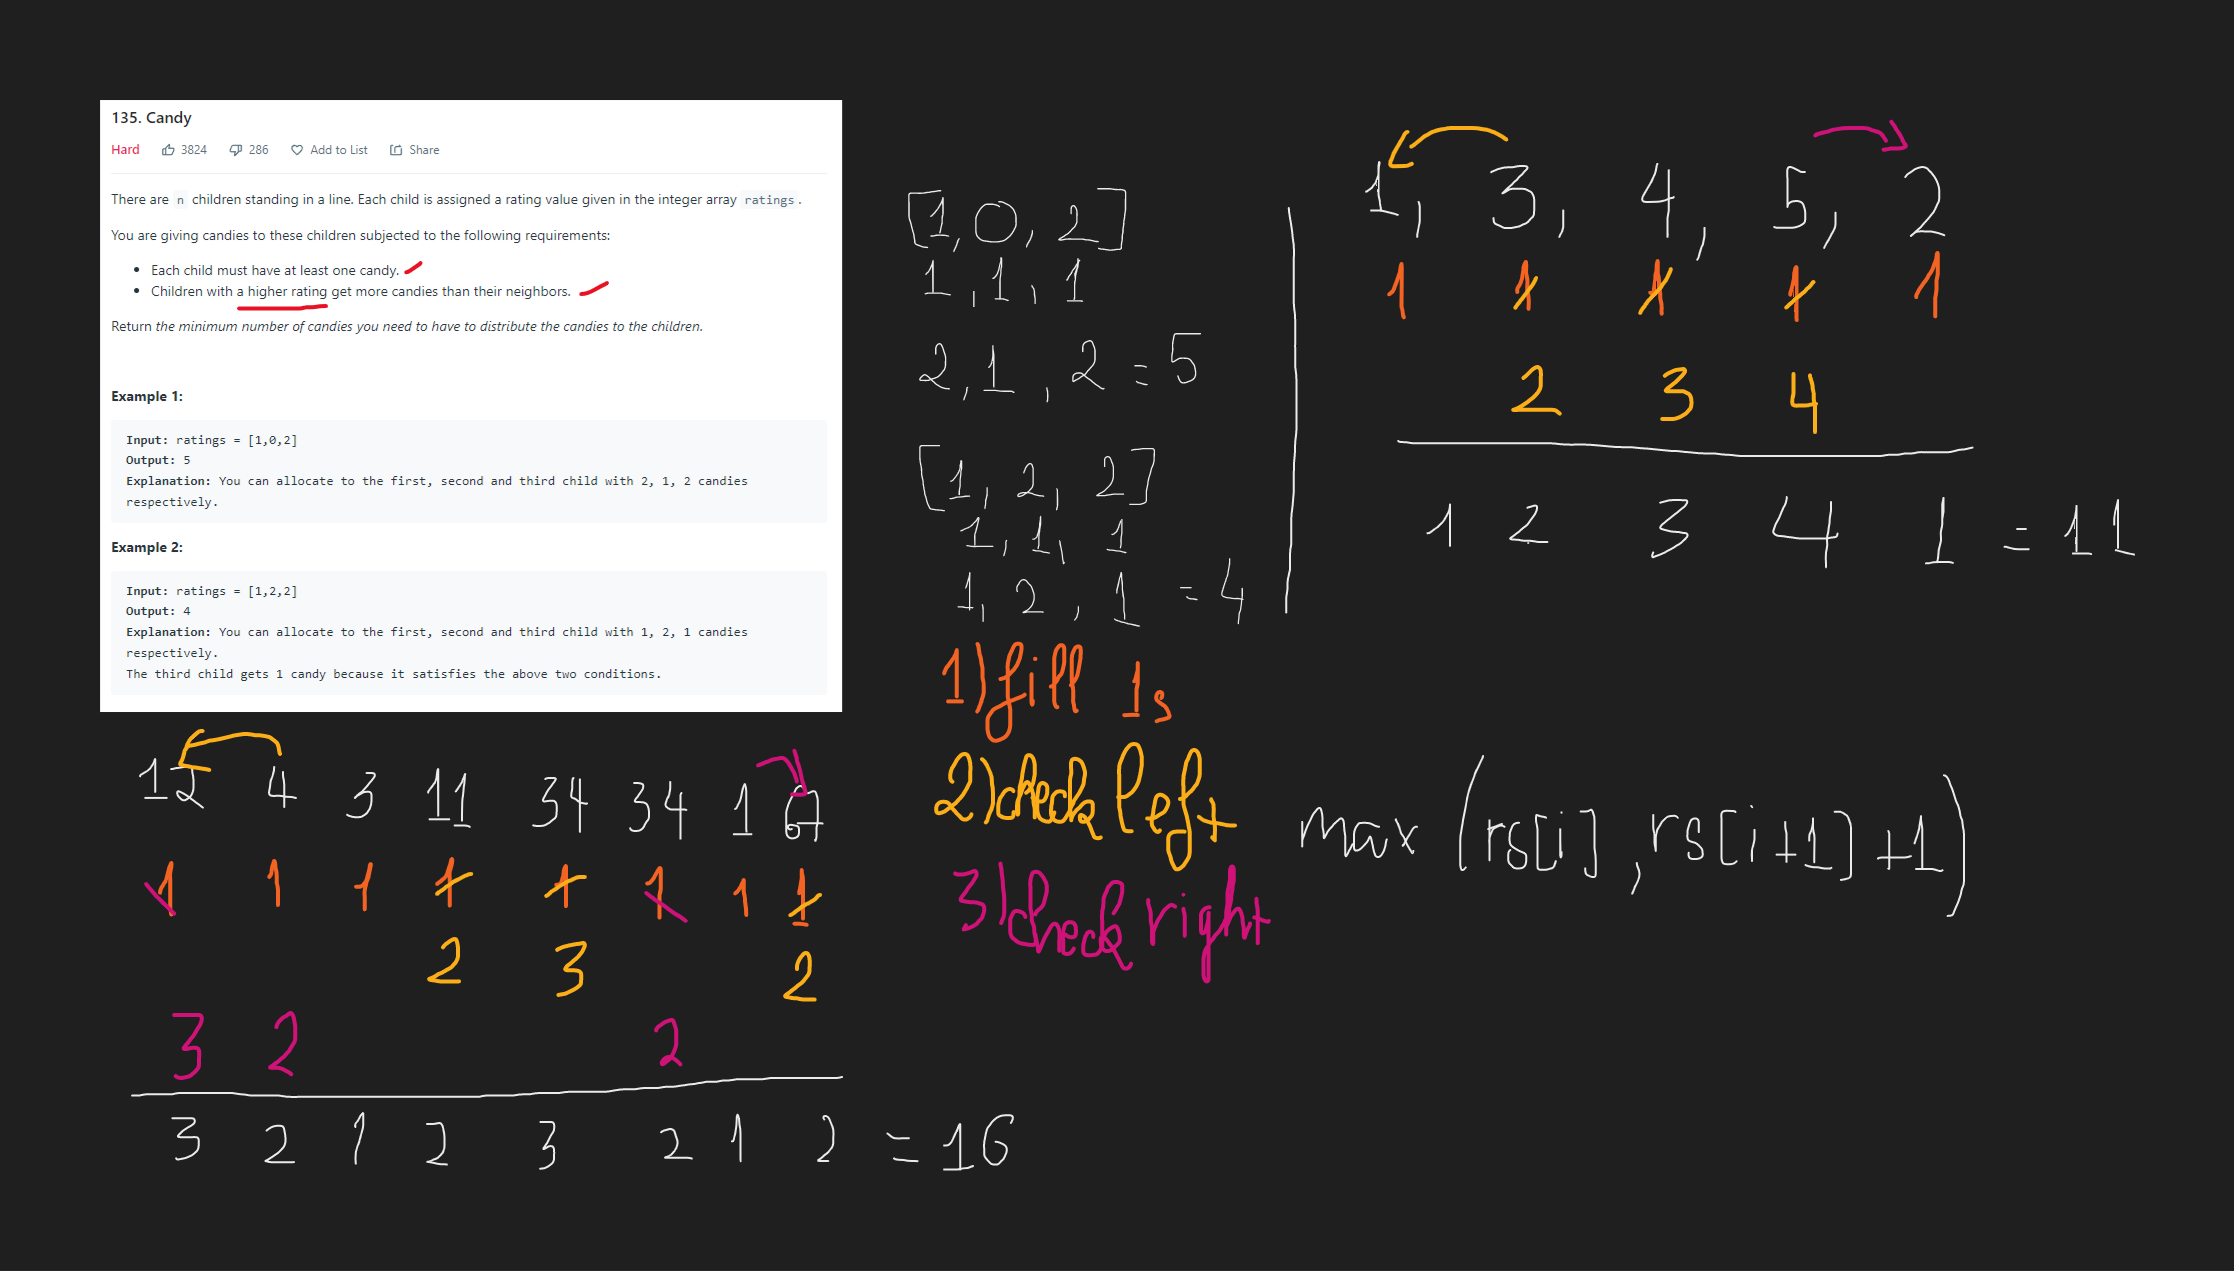 135. Candy
Hard 3824 286 Add to List Share
There are n children standing in a line. Each child is assigned a rating value given in the integer array ratings.
You are giving candies to these children subjected to the following requirements:
• Each child must have at least one candy.
• Children with a higher rating get more candies than their neighbors.
Return the minimum number of candies you need to have to distribute the candies to the children.
Example 1:
Input: ratings = [1,0,2]
Output: 5
Explanation: You can allocate to the first, second and third child with 2, 1, 2 candies
respectively.
Example 2:
Input: ratings = [1,2,2]
Output: 4
Explanation: You can allocate to the first, second and third child with 1, 2, 1 candies
respectively.
The third child gets 1 candy because it satisfies the above two conditions.
[1, 0, 2]
1, 1, 1
2, 1, 2 = 5
[1, 2, 2]
1, 1, 1
1, 2, 1 = 4
1, 3, 4, 5, 2
1 1 1 1 1
2 3 4
1 2 3 4 1 = 11
1) fill 1s
2) check left
3) check right
max (rs[i], rs[i+1] +1)
12 4 3 11 34 34 1 67
1 1 1 1 1 1 1 1
2 3 2
3 2 2
3 2 1 2 3 2 1 2 = 16